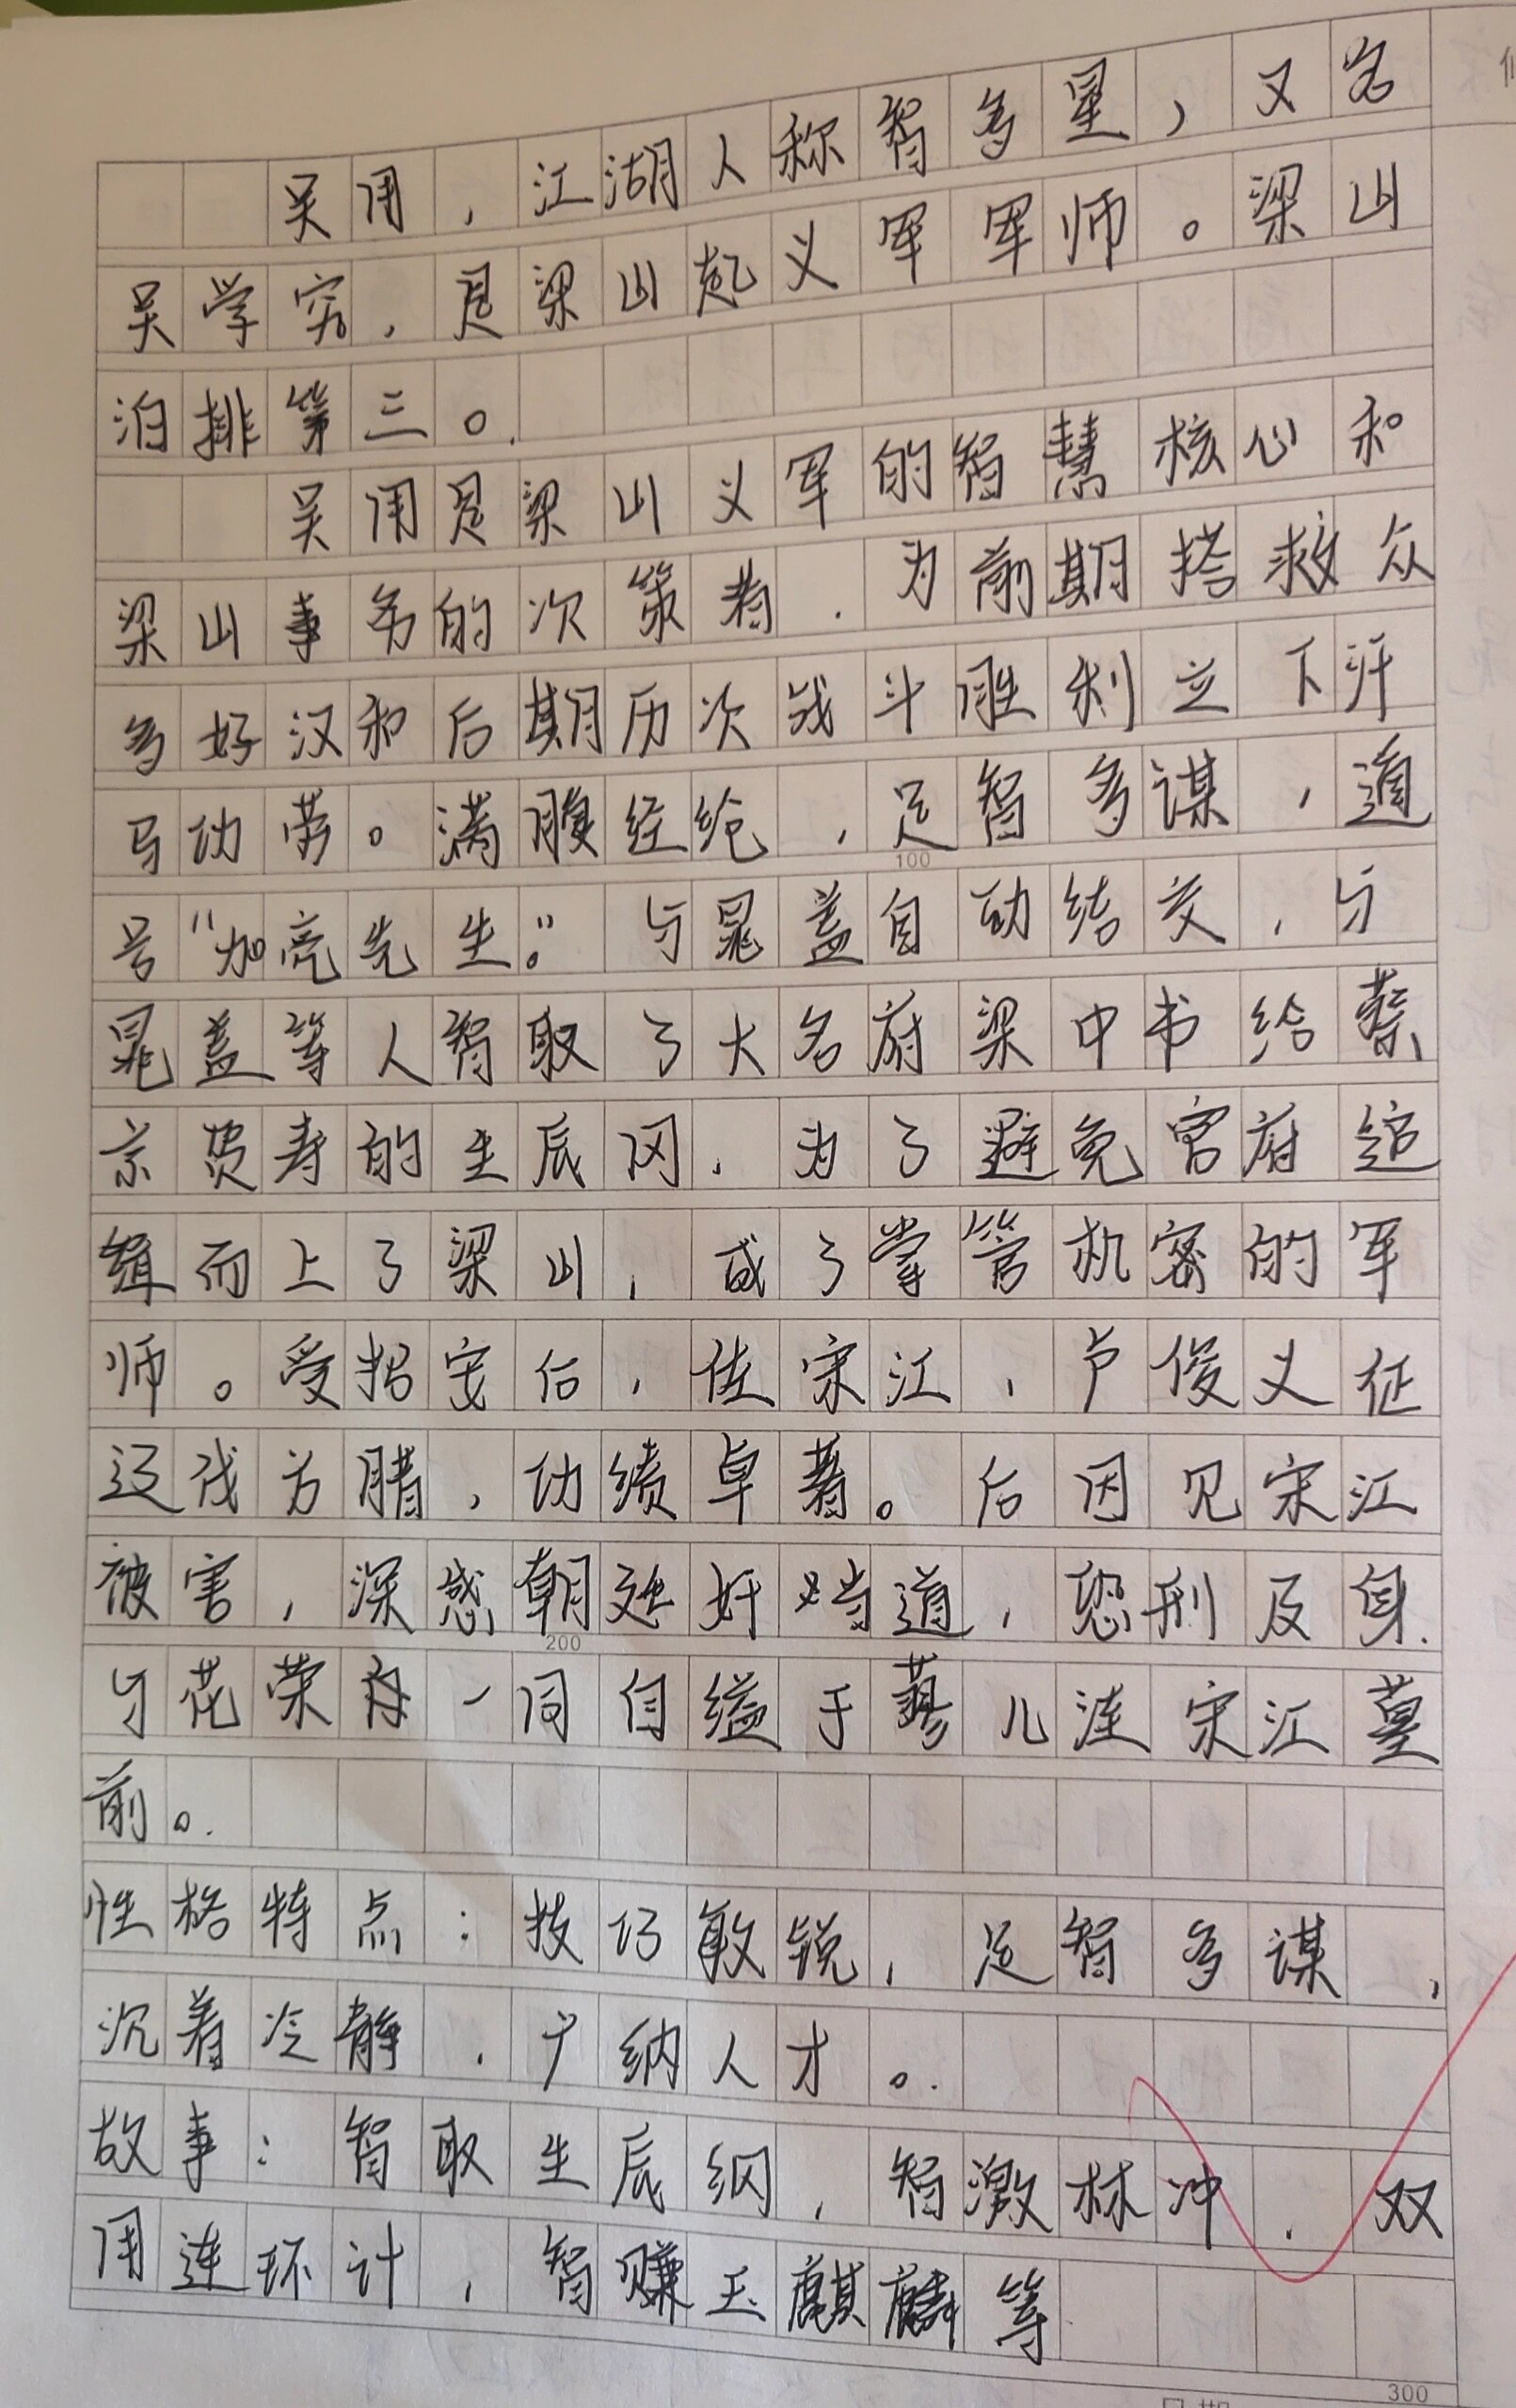 吴用，江湖人称智多星，又名
吴学究，是梁山起义军军师。梁山
泊排第三。
吴用是梁山义军的智慧核心和
梁山事务的次策者，为前期搭救众
多好汉和后期历次战斗胜利立下汗
马功劳。满腹经纶，足智多谋，道
号“加亮先生”。与晁盖自幼结交，与
晁盖等人智取了大名府梁中书给蔡
京贺寿的生辰冈，为了避免官府追
缉而上了梁山，成了掌管机密的军
师。受招安后，佐宋江，卢俊义征
辽伐方腊，功绩卓著。后因见宋江
被害，深感朝廷奸当道，恐刑及身，
与花荣一同自缢于蓼儿洼宋江墓
前。
性格特点：技巧敏锐，足智多谋，
沉着冷静，广纳人才。
故事：智取生辰纲，智激林冲，双
用连环计，智赚玉麒麟等
100
200
300